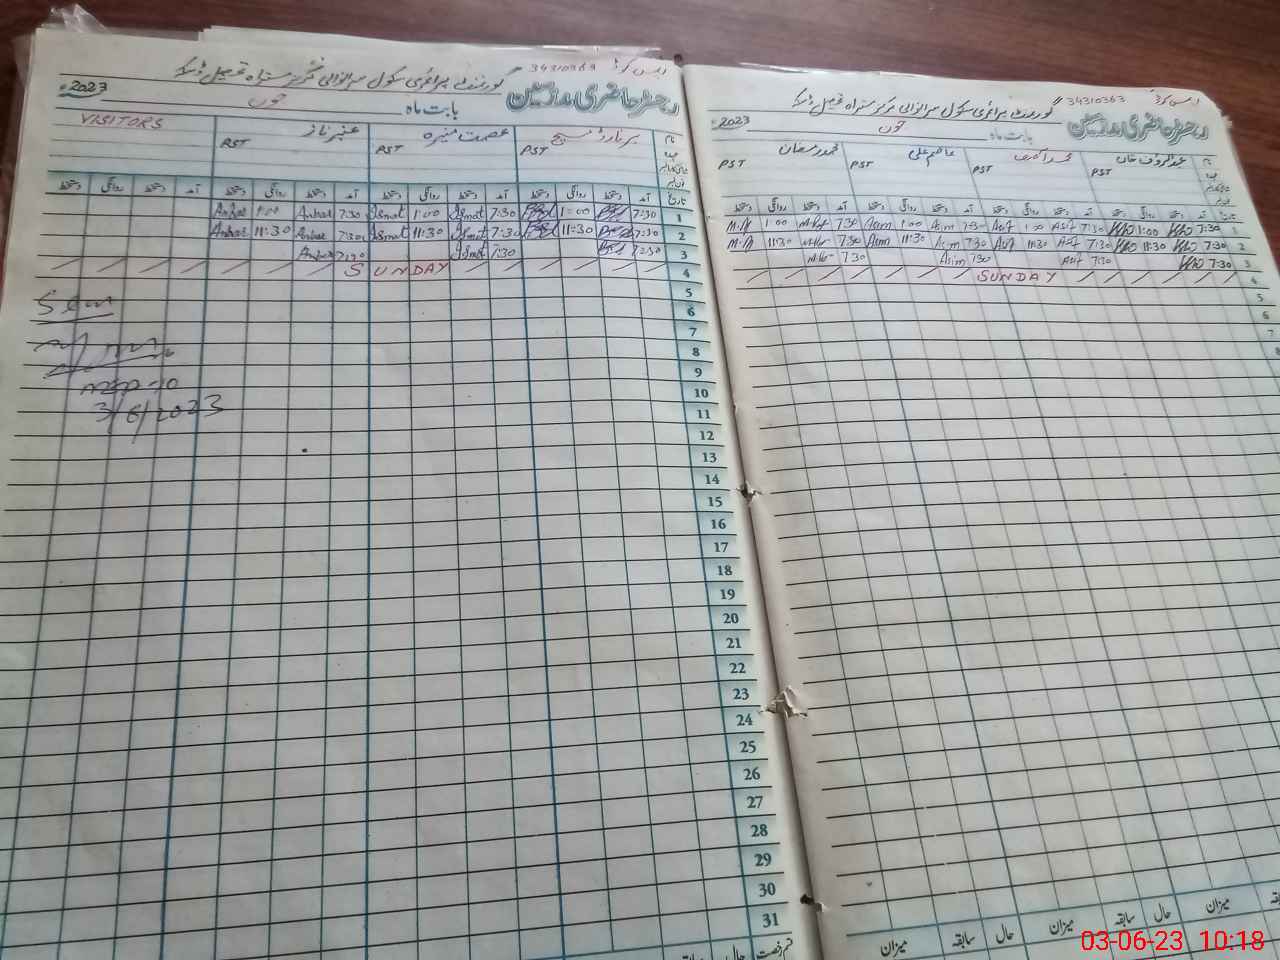 34310363
گورنمنٹ پرائمری سکول سرانوالی مرکز ستراہ تحصیل ڈسکہ
رجسٹر حاضری مدرسین
بابت ماہ جون 2023
نام
VISITORS
عنبر ناز
PST
عصمت منیرہ
PST
برنارڈ مسیح
PST
تاریخ آمد دستخط روانگی دستخط آمد دستخط روانگی دستخط آمد دستخط روانگی دستخط آمد دستخط روانگی دستخط
Anbar 1:00 Anbar 7:30 Ismat 1:00 Ismat 7:30 1:00 7:30 1
Anbar 11:30 Anbar 7:30 Ismat 11:30 Ismat 7:30 11:30 7:30 2
Anbar 7:30 Ismat 7:30 7:30 3
SUNDAY 4
5
Seen
6
7
8
9
10
3/6/2023
11
12
13
14
15
16
17
18
19
20
21
22
23
24
25
26
27
28
29
30
31
34310363
گورنمنٹ پرائمری سکول سرانوالی مرکز ستراہ تحصیل ڈسکہ
رجسٹر حاضری مدرسین
بابت ماہ جون 2023
نام
عبدالرؤف خان
PST
محمد آصف
PST
عاصم علی
PST
محمد رمضان
PST
تاریخ آمد دستخط روانگی دستخط آمد دستخط روانگی دستخط آمد دستخط روانگی دستخط آمد دستخط روانگی دستخط
1:00 7:30 Asim 1:00 Asim 7:30 Asif 1:00 Asif 7:30 1:00 7:30 1
11:30 7:30 Asim 11:30 Asim 7:30 Asif 11:30 Asif 7:30 11:30 7:30 2
7:30 Asim 7:30 Asif 7:30 7:30 3
SUNDAY 4
5
6
7
8
میزان سابقہ حال میزان سابقہ حال میزان
03-06-23 10:18